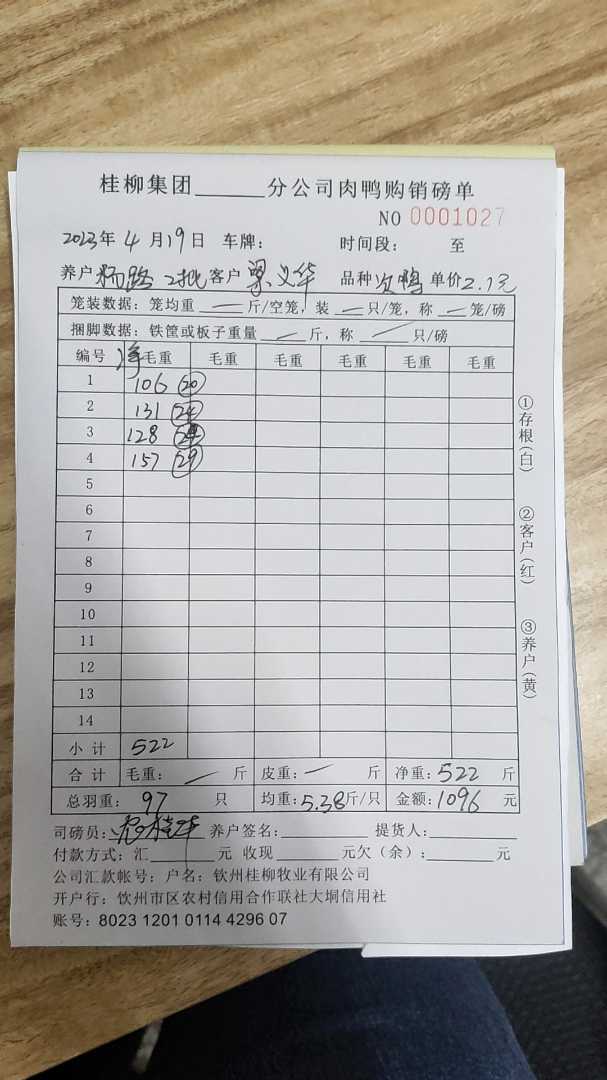 桂柳集团______分公司肉鸭购销磅单
NO 0001027
2023年 4 月 19日 车牌： 时间段： 至
养户 杨路 2批 客户 梁义华 品种 次鸭 单价 2.1元
笼装数据：笼均重 — 斤/空笼，装 — 只/笼，称 — 笼/磅
捆脚数据：铁筐或板子重量 — 斤，称 — 只/磅
编号 净 毛重 毛重 毛重 毛重 毛重 毛重
1 106 20
2 131 24
3 128 24
4 157 29
5
6
7
8
9
10
11
12
13
14
小计 522
合计 毛重： — 斤 皮重： — 斤 净重：522 斤
总羽重： 97 只 均重：5.38斤/只 金额：1096 元
司磅员： 养户签名：________ 提货人：________
付款方式：汇______元 收现______元欠（余）：______元
公司汇款帐号：户名：钦州桂柳牧业有限公司
开户行：钦州市区农村信用合作联社大垌信用社
账号：8023 1201 0114 4296 07
①存根（白）
②客户（红）
③养户（黄）